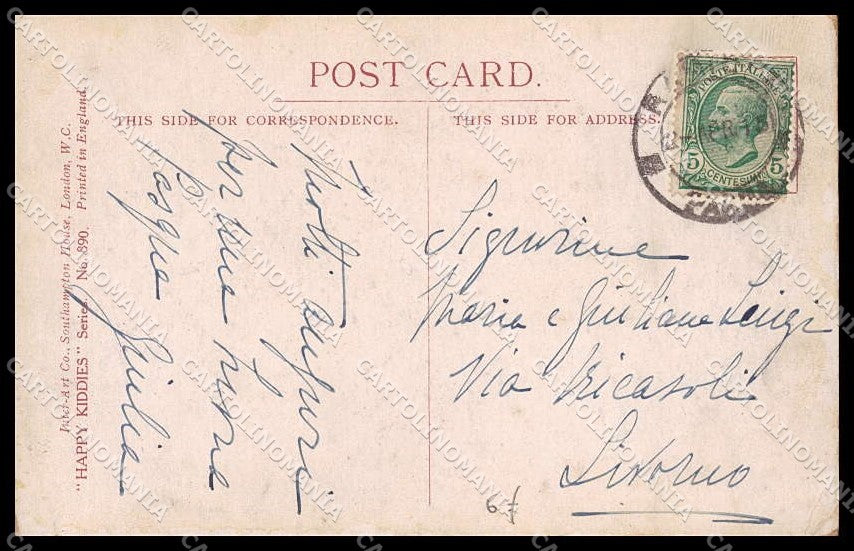 POST CARD.
THIS SIDE FOR CORRESPONDENCE.
THIS SIDE FOR ADDRESS.
POSTE ITALIANE
5 CENTESIMI 5
Inter-Art Co., Southampton House, London, W.C.
"HAPPY KIDDIES" Series. No. 890. Printed in England.
Molti auguri
per una buona
Pasqua
Giulia
Signorine
Maria e Giuliana Luigi
Via Ricasoli
Livorno
CARTOLINOMANIA